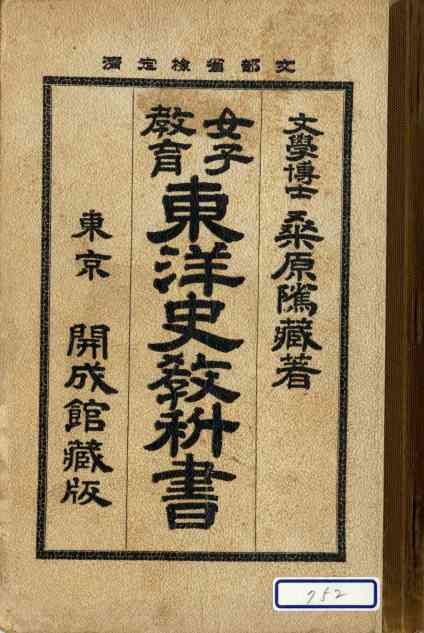 文部省検定濟
文學博士 桑原隲藏著
女子
教育
東洋史教科書
東京 開成館藏版
752